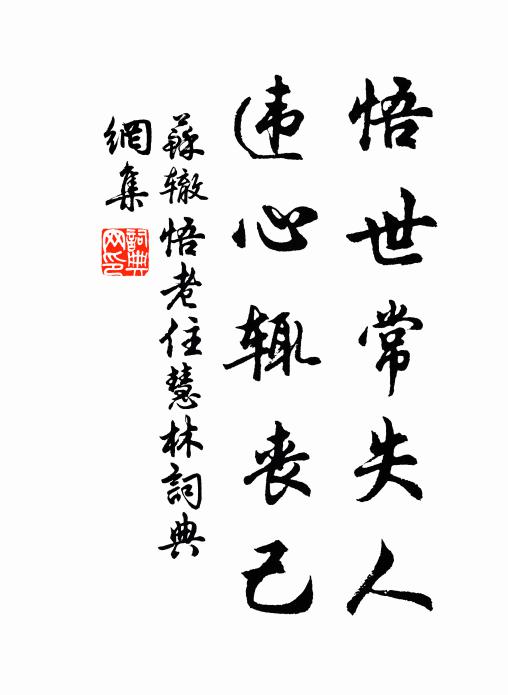 悟世常失人
违心辄丧己
蘇辙悟老住慧林詞典
網集
詞典网印